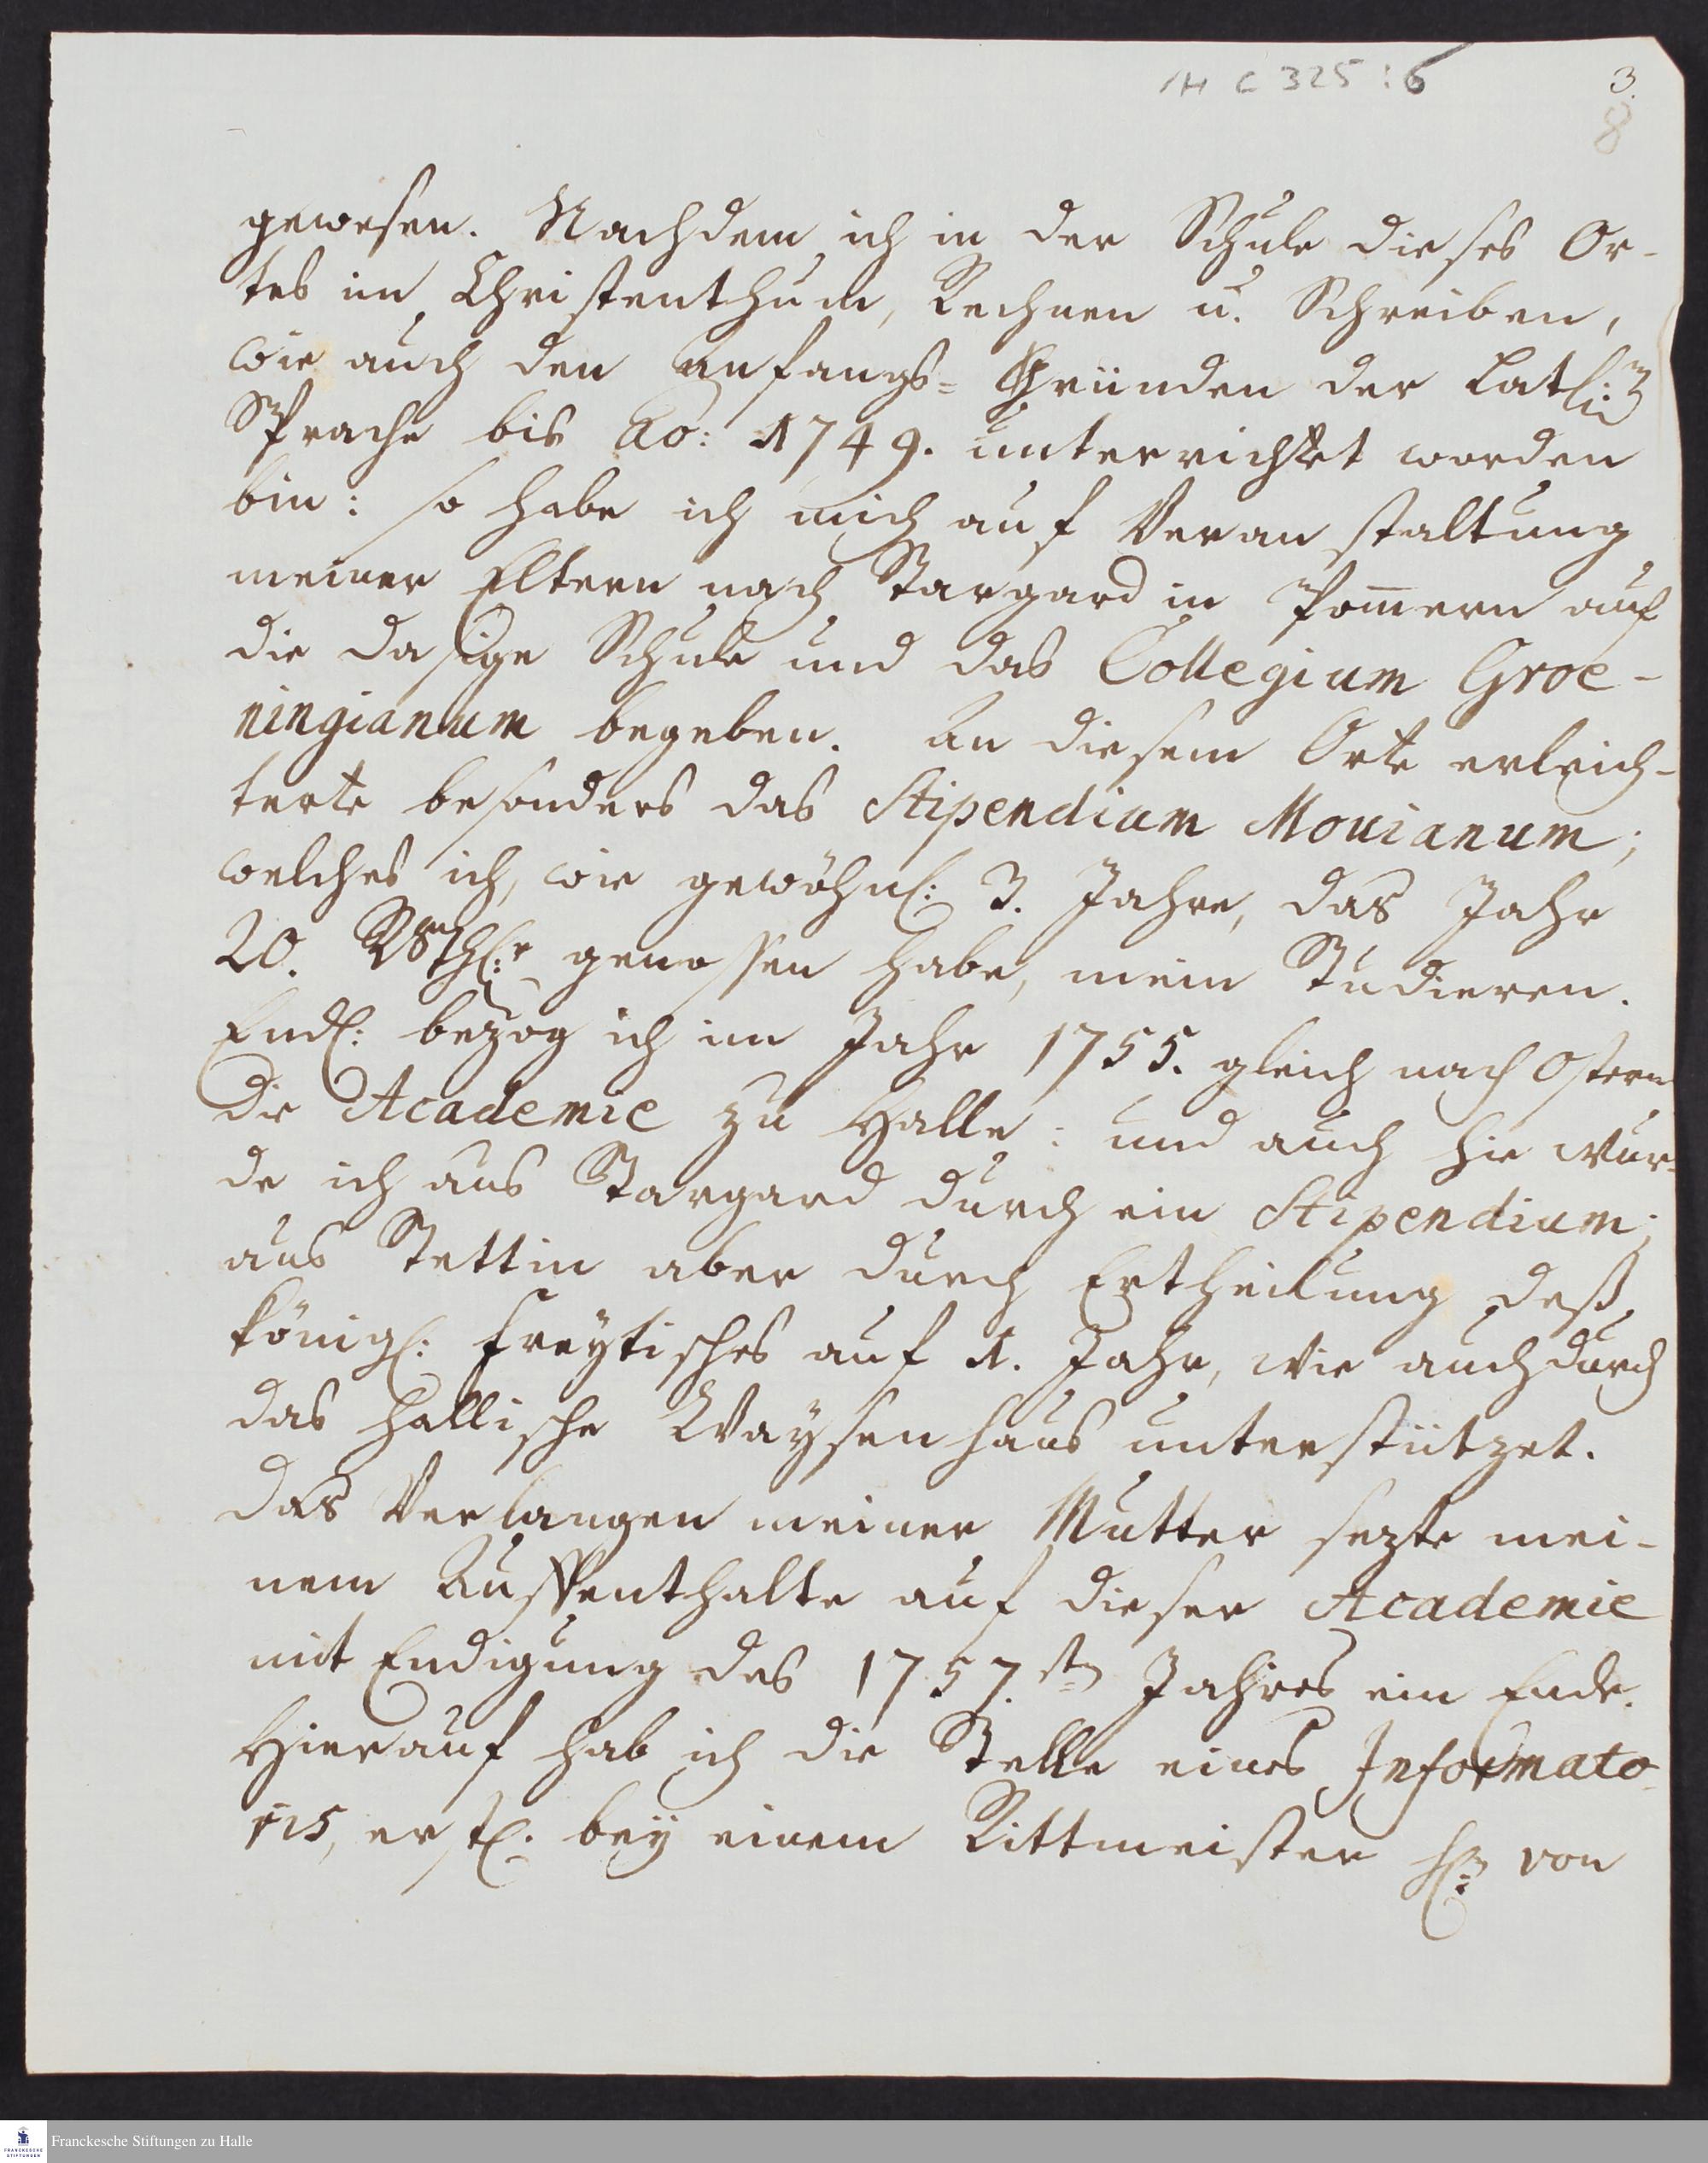 1H C 325 : 6
3.
8
gewesen. Nachdem ich in der Schule dieses Or-
tes im Christenthum, Rechnen u. Schreiben,
wie auch den Anfangs= Gründen der Latl:n
Sprache bis Ao: 1749. unterrichtet worden
bin: so habe ich mich auf Veranstaltung
meiner Eltern nach Stargard in Pom̅ern auf
die dasige Schule und das Collegium Groe-
ningianum begeben. An diesem Orte erleich-
terte besonders das Stipendium Mouianum;
welches ich, wie gewöhnl: 3. Jahre, das Jahr
20. Rthl:r genossen habe, mein Studieren.
Endl: bezog ich im Jahr 1755. gleich nach Ostern
die Academie zu Halle: und auch hie wur-
de ich aus Stargard durch ein Stipendium;
aus Stettin aber durch Ertheilung deß
königl: Freytisches auf 1. Jahr, wie auch durch
das Hallische Waysenhaus unterstützet.
Das Verlangen meiner Mutter sezte mei-
nem Auffenthalte auf dieser Academie
mit Endigung des 1757.stn Jahres ein Ende.
Hierauf hab ich die Stelle eines Informato-
ris, erstl. bey einem Rittmeister H:n von
Franckesche Stiftungen zu Halle
FRANCKESCHE
STIFTUNGEN